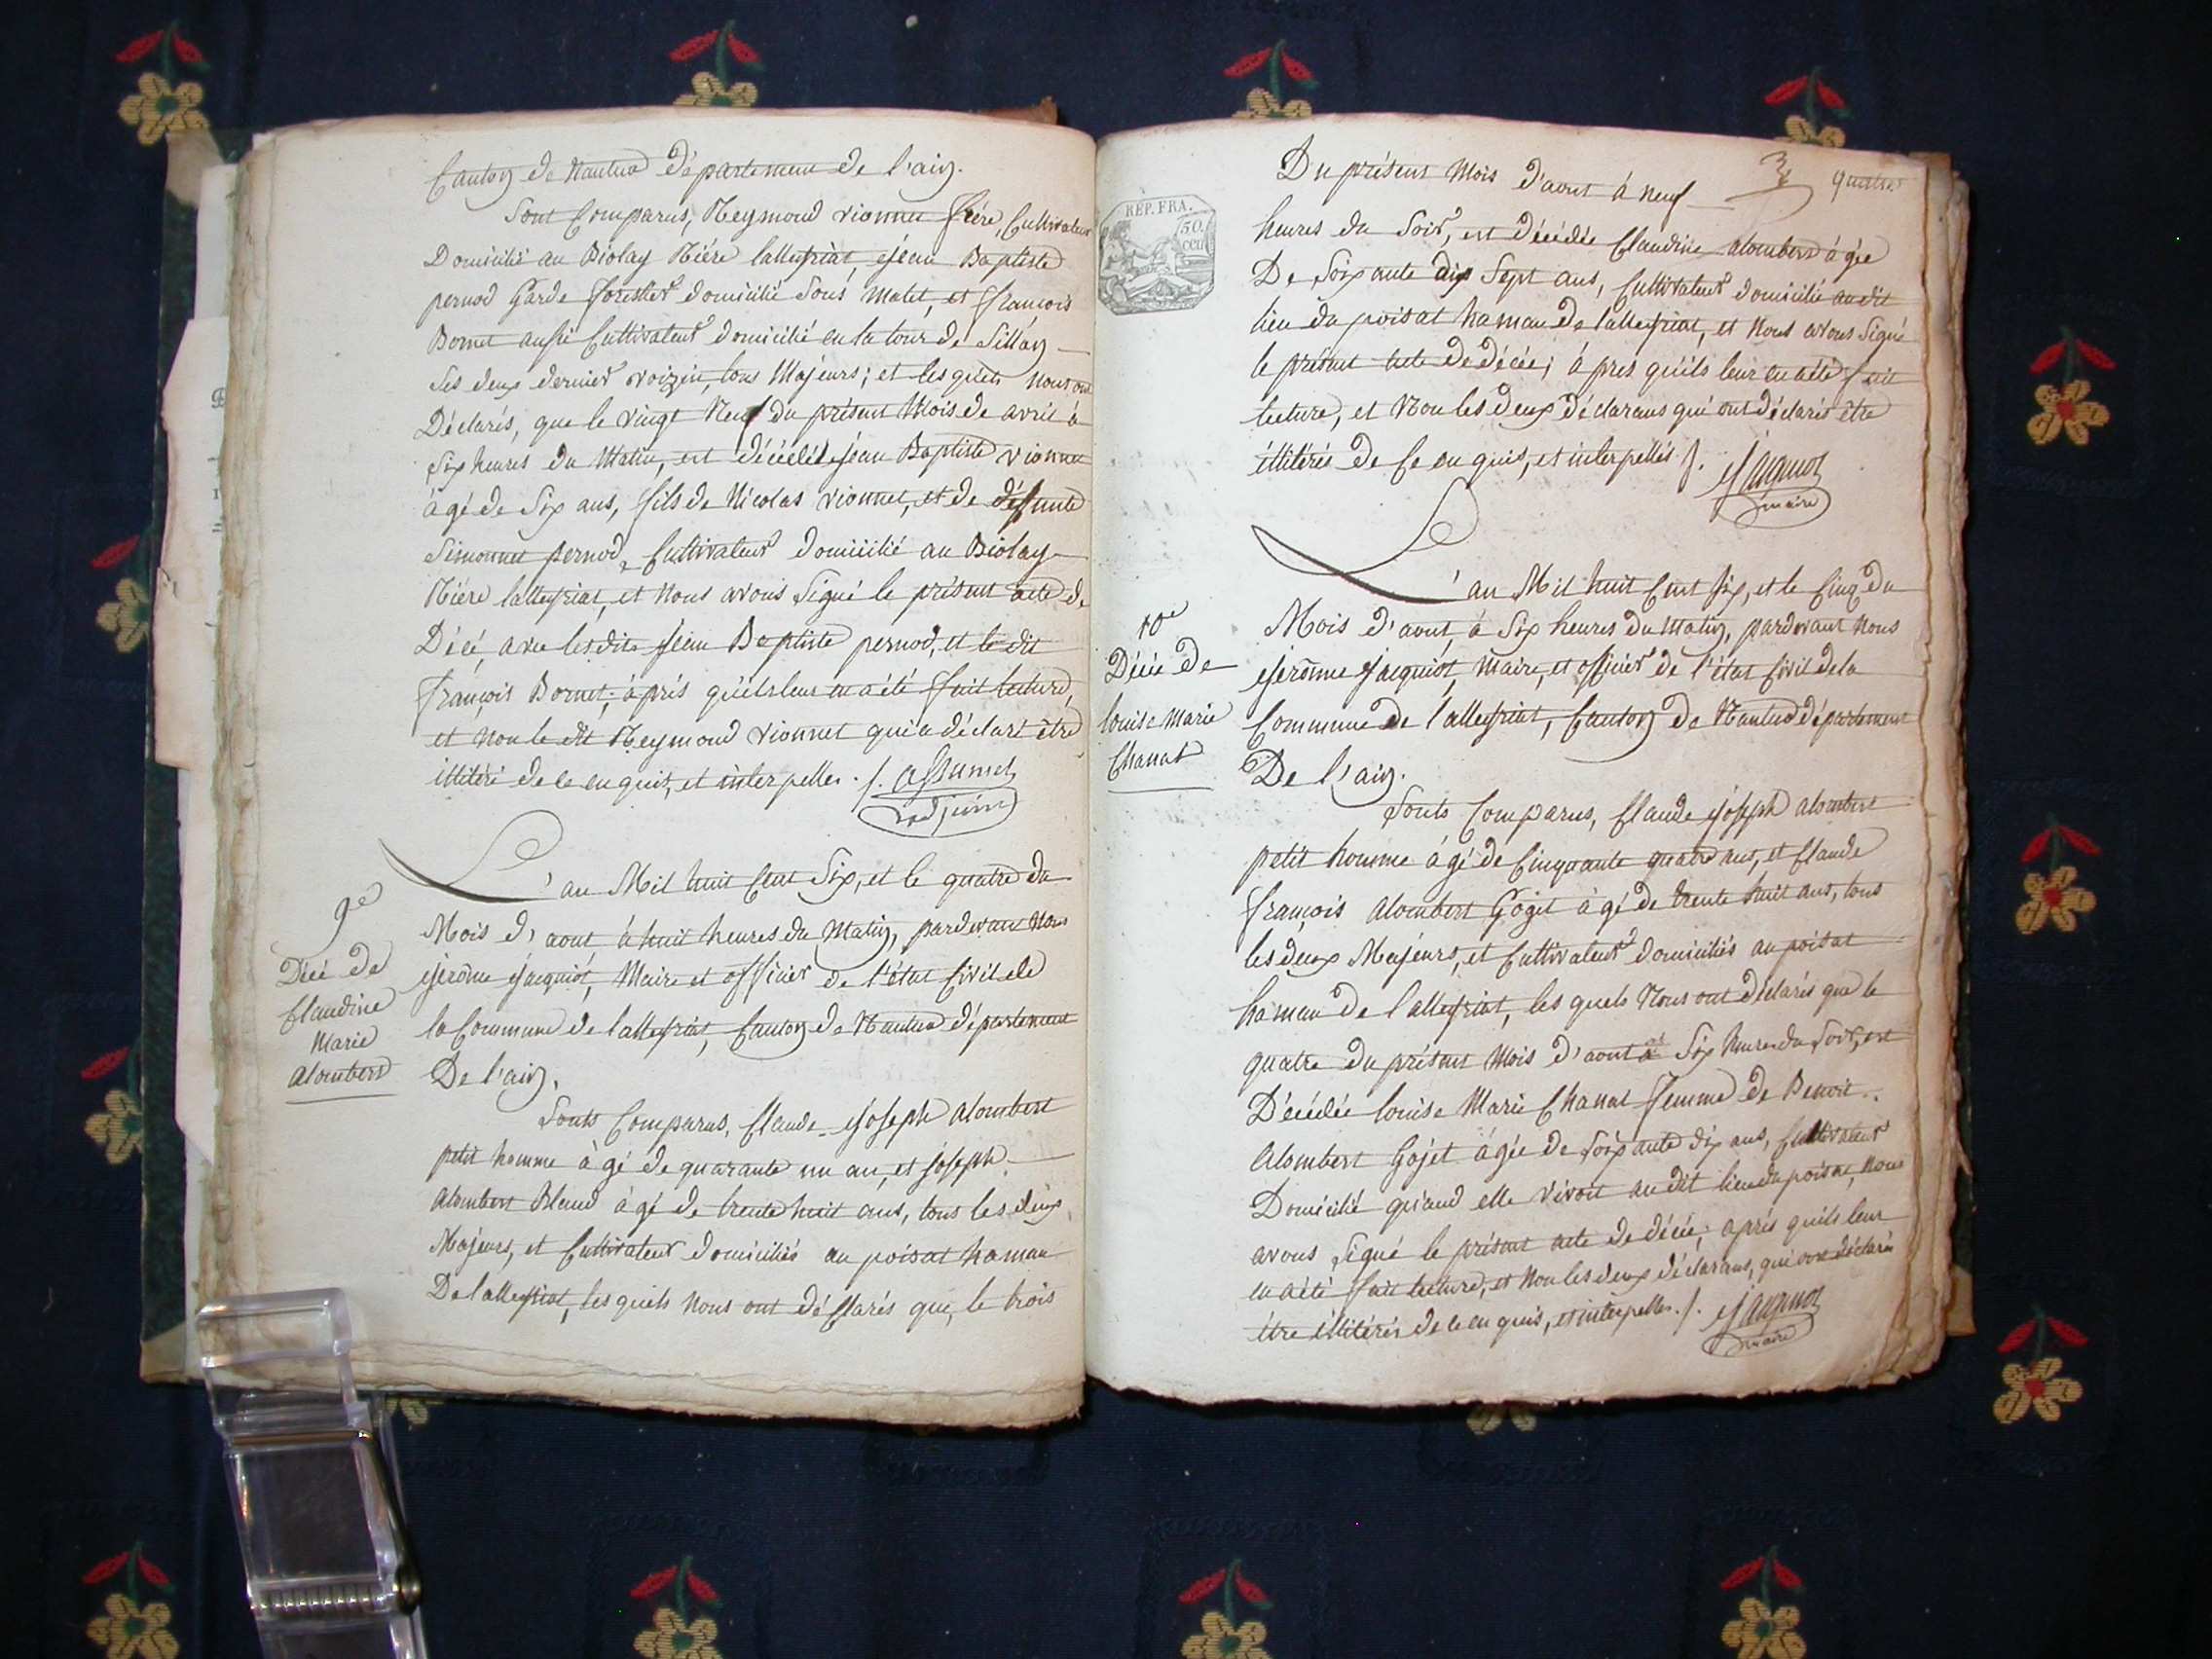 Canton de Nantua département de l'ain.
Sont Comparus, Reymond vionnet frère, Cultivateur
Domicilié au Biolay Rière lalleyriat, jean Baptiste
pernod Garde forestier domicilié Sous Matet, et françois
Bornet aussi Cultivateur domicilié en la tour de Sillan
Ses deux dernier voizin, tous Majeurs; et les quels nous ont
Déclarés, que le vingt Neuf du présent Mois de avril à
Six heures du Matin, est décédé jean Baptiste vionnet
à gé de Six ans, fils de Nicolas vionnet, et de défunte
Simonne pernod, Cultivateur domicilié au Biolay
Rière lalleyriat, et Nous avons Signé le présent acte de
Décé, avec les dits jean Baptiste pernod, et le dit
françois Bornet, après qu'ils leur en a été fait lecture,
et non le dit Reymond vionnet qui a déclaré être
illitéré de ce en quis, et interpeller ./.
adjoint
9e
Décé de
Claudine
Marie
alombert
L'an Mil huit Cent Six, et le quatre du
Mois d'aout à huit heures du Matin, pardevant Nous
jérôme jacquiot, Maire et officier de l'état Civil de
la Commune de lalleyriat, Canton de Nantua département
De l'ain.
Sonts Comparus, Claude joseph alombert
petit homme à gé de quarante un an, et joseph
alombert Bland à gé de trente huit ans, tous les deux
Majeurs, et Cultivateur domiciliés au poisat hamau
De lalleyriat, les quels nous ont déclarés que, le trois
3e quatre
Du présent Mois d'aout à neuf
REP. FRA.
50.
cen
heures du Soir, est décédée Claudine alombert à gée
De Soixante dix Sept ans, Cultivateur domicilié au dit
lieu du poisat hamau de lalleyriat, et Nous avons Signé
le présent acte de décée; à pres qu'ils leur en a été fait
lecture, et Non les deux déclarans qui ont déclarés être
illitérés de Ce en quis, et interpellés ./. jacquiot
maire
10e
Décée de
louise marie
Chanat
L'an Mil huit Cent Six, et le Cinq du
Mois d'aout, à Six heures du Matin, pardevant Nous
jerôme jacquiot, Maire, et officier de l'état Civil de la
Commune de lalleyriat, Canton de Nantua département
De l'ain.
Sonts Comparus, Claude joseph alombert
petit homme à gé de Cinquante quatre ans, et Claude
françois alombert Gojet à gé de trente huit ans, tous
les deux Majeurs, et Cultivateur domiciliés au poisat
hamau de lalleyriat, les quels Nous ont déclarés que le
quatre du présent Mois d'aout à Six heures du Soir, est
Décédée louise Marie Chanat femme de Benoit
Alombert Gojet à gée de Soixante dix ans, Cultivateur
Domicilié quand elle vivoit au dit lieu du poisat, Nous
avons Signé le présent acte de décée; après qu'ils leur
en a été fait lecture, et Non les deux déclarans, qui ont déclarés
être illitérés de ce en quis, et interpeller ./. jacquiot
maire